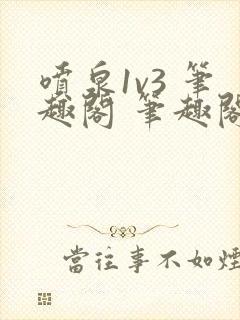 噴泉1v3 筆
趣閣 筆趣閣
當往事不如煙